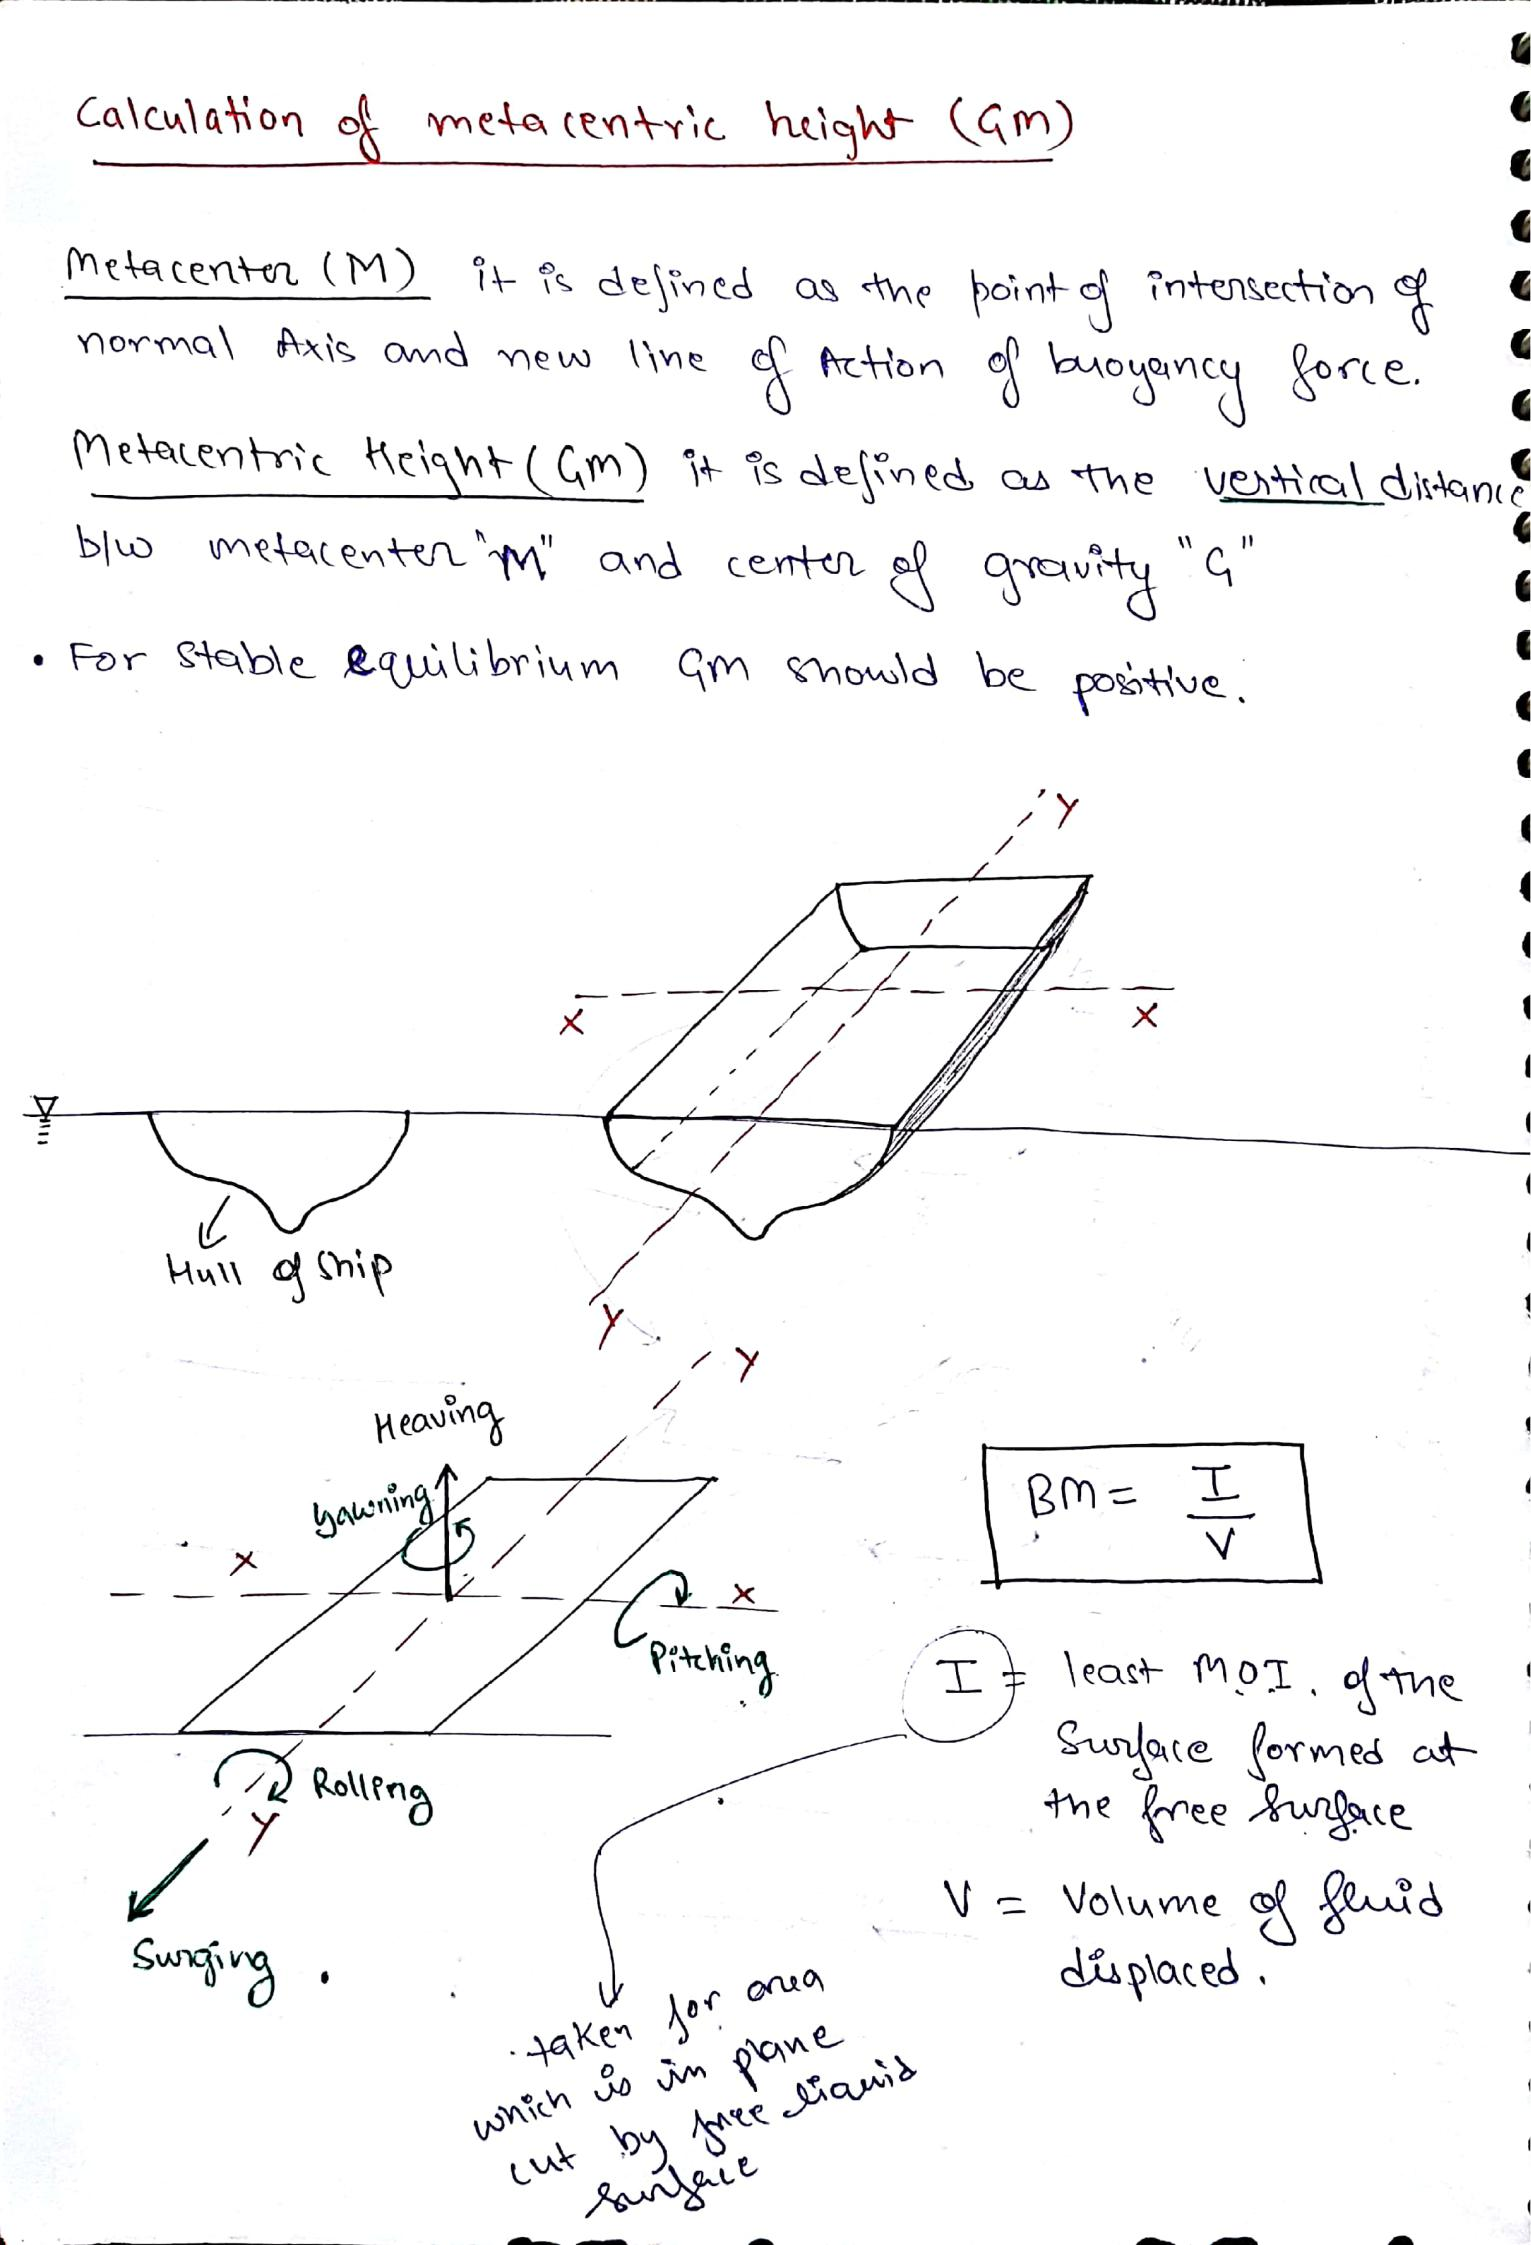 Calculation of metacentric height (GM)
Metacenter (M) it is defined as the point of intersection of
normal Axis and new line of Action of buoyancy force.
Metacentric Height (GM) it is defined as the vertical distance
b/w metacenter "M" and center of gravity "G"
• For stable equilibrium GM should be positive.
Y
X
X
Hull of ship
Y
Y
Heaving
Yawning
X
X
Pitching
Rolling
Y
Surging
BM = I/V
I = least M.O.I. of the
Surface formed at
the free surface
V = Volume of fluid
displaced.
taken for area
which is in plane
cut by free liquid
surface